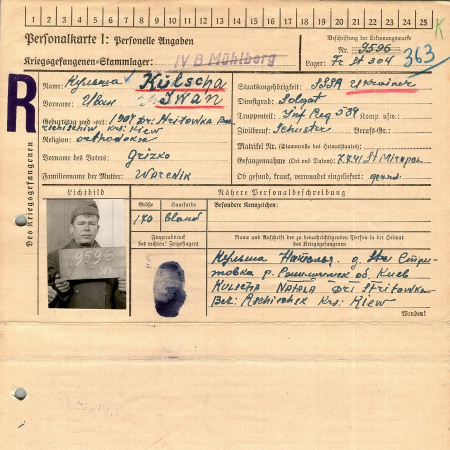 1 2 3 4 5 6 7 8 9 10 11 12 13 14 15 16 17 18 19 20 21 22 23 24 25
K
Personalkarte I: Personelle Angaben
Beschriftung der Erkennungsmarke
Nr. 9596
363
Kriegsgefangenen-Stammlager: IV B Mühlberg
Lager: Fr. St 304
R
Des Kriegsgefangenen
Name: Кульша Kulscha
Vorname: Иван Iwan
Geburtstag und -ort: 1907 Dr: Stritowka Bek
Krs: Kiew
Religion: orthodokse
Vorname des Vaters: Grizko
Familienname der Mutter: Warenik
Staatsangehörigkeit: SSSR Ukrainer
Dienstgrad: Solgat
Truppenteil: Inf Reg 584 Komp. usw.:
Zivilberuf: Schuster Berufs-Gr.:
Matrikel Nr. (Stammrolle des Heimatstaates):
Gefangennahme (Ort und Datum): 7.7.41
Ob gesund, krank, verwundet eingeliefert: gesund
Lichtbild
Nähere Personalbeschreibung
Größe Haarfarbe Besondere Kennzeichen:
170 bland
9596
Fingerabdruck
des rechten! Zeigefingers
Name und Anschrift der zu benachrichtigenden Person in der Heimat
des Kriegsgefangenen
Кульша Наталья д.
р. об. Киев
KULSCHA NATALA Dr: Stritowka
Bek: Krs: Kiew
Wenden!